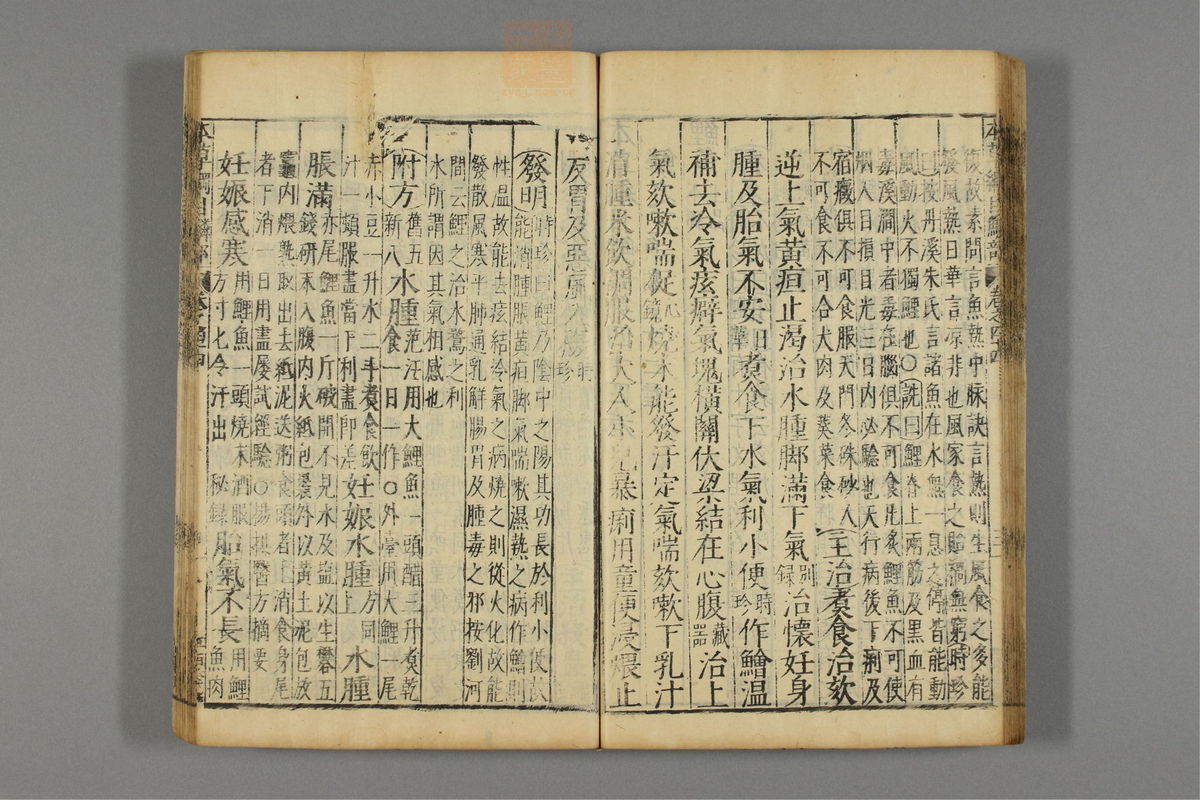 後故素問言魚熱中脉訣言熱則生風食之多能
發風熱日華言凉非也風家食之貽禍無窮時珍
曰按丹溪朱氏言諸魚在水無一息之停皆能動
風動火不獨鯉也○詵曰鯉脊上兩筋及黑血有
毒溪澗中者毒在腦俱不可食凡炙鯉魚不可使
烟入目損目光三日内必驗也天行病後下痢及
宿癥俱不可食服天門冬硃砂人
不可食不可合犬肉及葵菜食
主治煮食治欬
逆上氣黄疸止渴治水腫脚滿下氣别録治懷妊身
腫及胎氣不安日華煮食下水氣利小便時珍作鱠温
補去冷氣痃癖氣塊横關伏梁結在心腹藏器治上
氣欬嗽喘促
燒末能發汗定氣喘欬嗽下乳汁
消腫米飲調服治大人小兒暴痢用童便浸煨止
反胃及惡風入腹時珍
發明時珍曰鯉乃陰中之陽其功長於利小便故
能消腫脹黄疸脚氣喘嗽濕熱之病作鱠則
性温故能去痃結冷氣之病燒之則從火化故能
發散風寒平肺通乳解腸胃及腫毒之邪按劉河
間云鯉之治水鶩之利
水所謂因其氣相感也
附方舊五新八水腫范汪用大鯉魚一頭醋三升煮乾
食一日一作○外臺用大鯉一尾
赤小豆一升水二斗煮食飲
汁一頓服盡當下利盡即差妊娠水腫方同上水腫
脹滿赤尾鯉魚一斤破開不見水及鹽以生礬五
錢研末入腹内火紙包裹外以黄土泥包放
竈内煨熟取出去紙泥送粥食頭者上消食身尾
者下消一日用盡屢試經驗○楊拱醫方摘要
妊娠感寒用鯉魚一頭燒末酒服
方寸匕令汗出秘録胎氣不長用鯉
魚肉